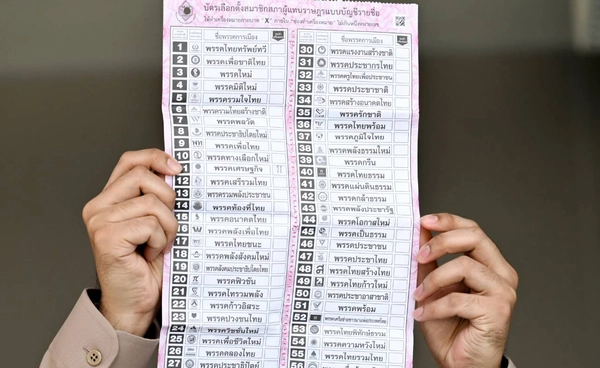 บัตรเลือกตั้งสมาชิกสภาผู้แทนราษฎรแบบบัญชีรายชื่อ
ชื่อพรรคการเมือง
1 พรรคไทยทรัพย์ทวี
2 พรรคเพื่อชาติไทย
3 พรรคใหม่
4 พรรคมิติใหม่
5 พรรครวมใจไทย
6 พรรครวมไทยสร้างชาติ
7 พรรคพลวัต
8 พรรคประชาธิปไตยใหม่
9 พรรคเพื่อไทย
10 พรรคทางเลือกใหม่
พรรคเศรษฐกิจ
12 พรรคเสรีรวมไทย
13 พรรครวมพลังประชาชน
14 พรรคท้องที่ไทย
15 พรรคอนาคตไทย
16 พรรคพลังเพื่อไทย
17 พรรคไทยชนะ
18 พรรคพลังสังคมใหม่
19 พรรคสังคมประชาธิปไตยไทย
20 พรรคฟิวชัน
21 พรรคไทรวมพลัง
22 พรรคก้าวอิสระ
23 พรรคปวงชนไทย
24 พรรควิชชั่นใหม่
25 พรรคเพื่อชีวิตใหม่
26 พรรคคลองไทย
27 พรรคประชาธิปัตย์
ชื่อพรรคการเมือง
30 พรรคแรงงานสร้างชาติ
31 พรรคประชากรไทย
32 พรรคครูไทยเพื่อประชาชน
33 พรรคประชาชาติ
34 พรรคสร้างอนาคตไทย
35 พรรครักชาติ
36 พรรคไทยพร้อม
37 พรรคภูมิใจไทย
38 พรรคพลังธรรมใหม่
39 พรรคกรีน
40 พรรคไทยธรรม
41 พรรคแผ่นดินธรรม
42 พรรคกล้าธรรม
43 พรรคพลังประชารัฐ
44 พรรคโอกาสใหม่
45 พรรคเป็นธรรม
46 พรรคประชาชน
47 พรรคประชาไทย
48 พรรคไทยสร้างไทย
49 พรรคไทยก้าวใหม่
50 พรรคประชาอาสาชาติ
51 พรรคพร้อม
52
53 พรรคไทยพิทักษ์ธรรม
54 พรรคความหวังใหม่
55 พรรคไทยรวมไทย
56